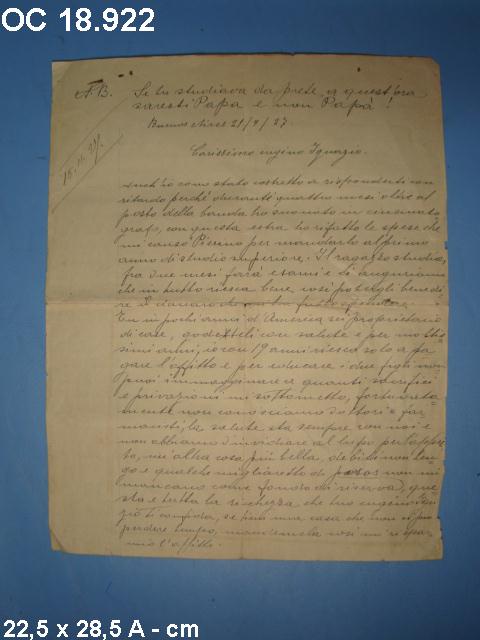 OC 18.922
N.B. Se tu studiava da prete, a quest'ora
saresti Papa e non Papà!
Buenos Aires 21/9/27
Carissimo cugino Ignazio.
Anch'io sono stato costretto a risponderti con
ritardo perché durante quattro mesi oltre al
posto della banda ho suonato in cinemato=
grafo, con questa extra ho rifatto le spese che
mi causò Pierino per mandarlo al primo
anno di studio superiore. Il ragazzo studia,
fra due mesi farà esami e ci auguriamo
che in tutto riesca bene, così potegli benedi=
re il danaro
Tu in pochi anni d'America sei proprietario
di case, godeteli con salute e per moltis=
simi anni, io con 19 anni riesco solo a pa=
gare l'affitto e per educare i due figli non
puoi immaginare a quanti sacrifici
e privazioni mi sottometto, fortunata=
mente non conosciamo dottori e far=
macisti, la salute sta sempre con noi e
non abbiamo d'invidiare al lupo per l'appeti=
to, un'altra cosa più bella, debiti non ten=
go e qualche migliaretto di pesos non mi
mancano come fondo di riserva, que=
sta è tutta la ricchezza che tuo cugino
ti confida, se hai una casa che non ci puoi
perdere tempo, mandamela così mi rispar=
mio l'affitto.
22,5 x 28,5 A - cm